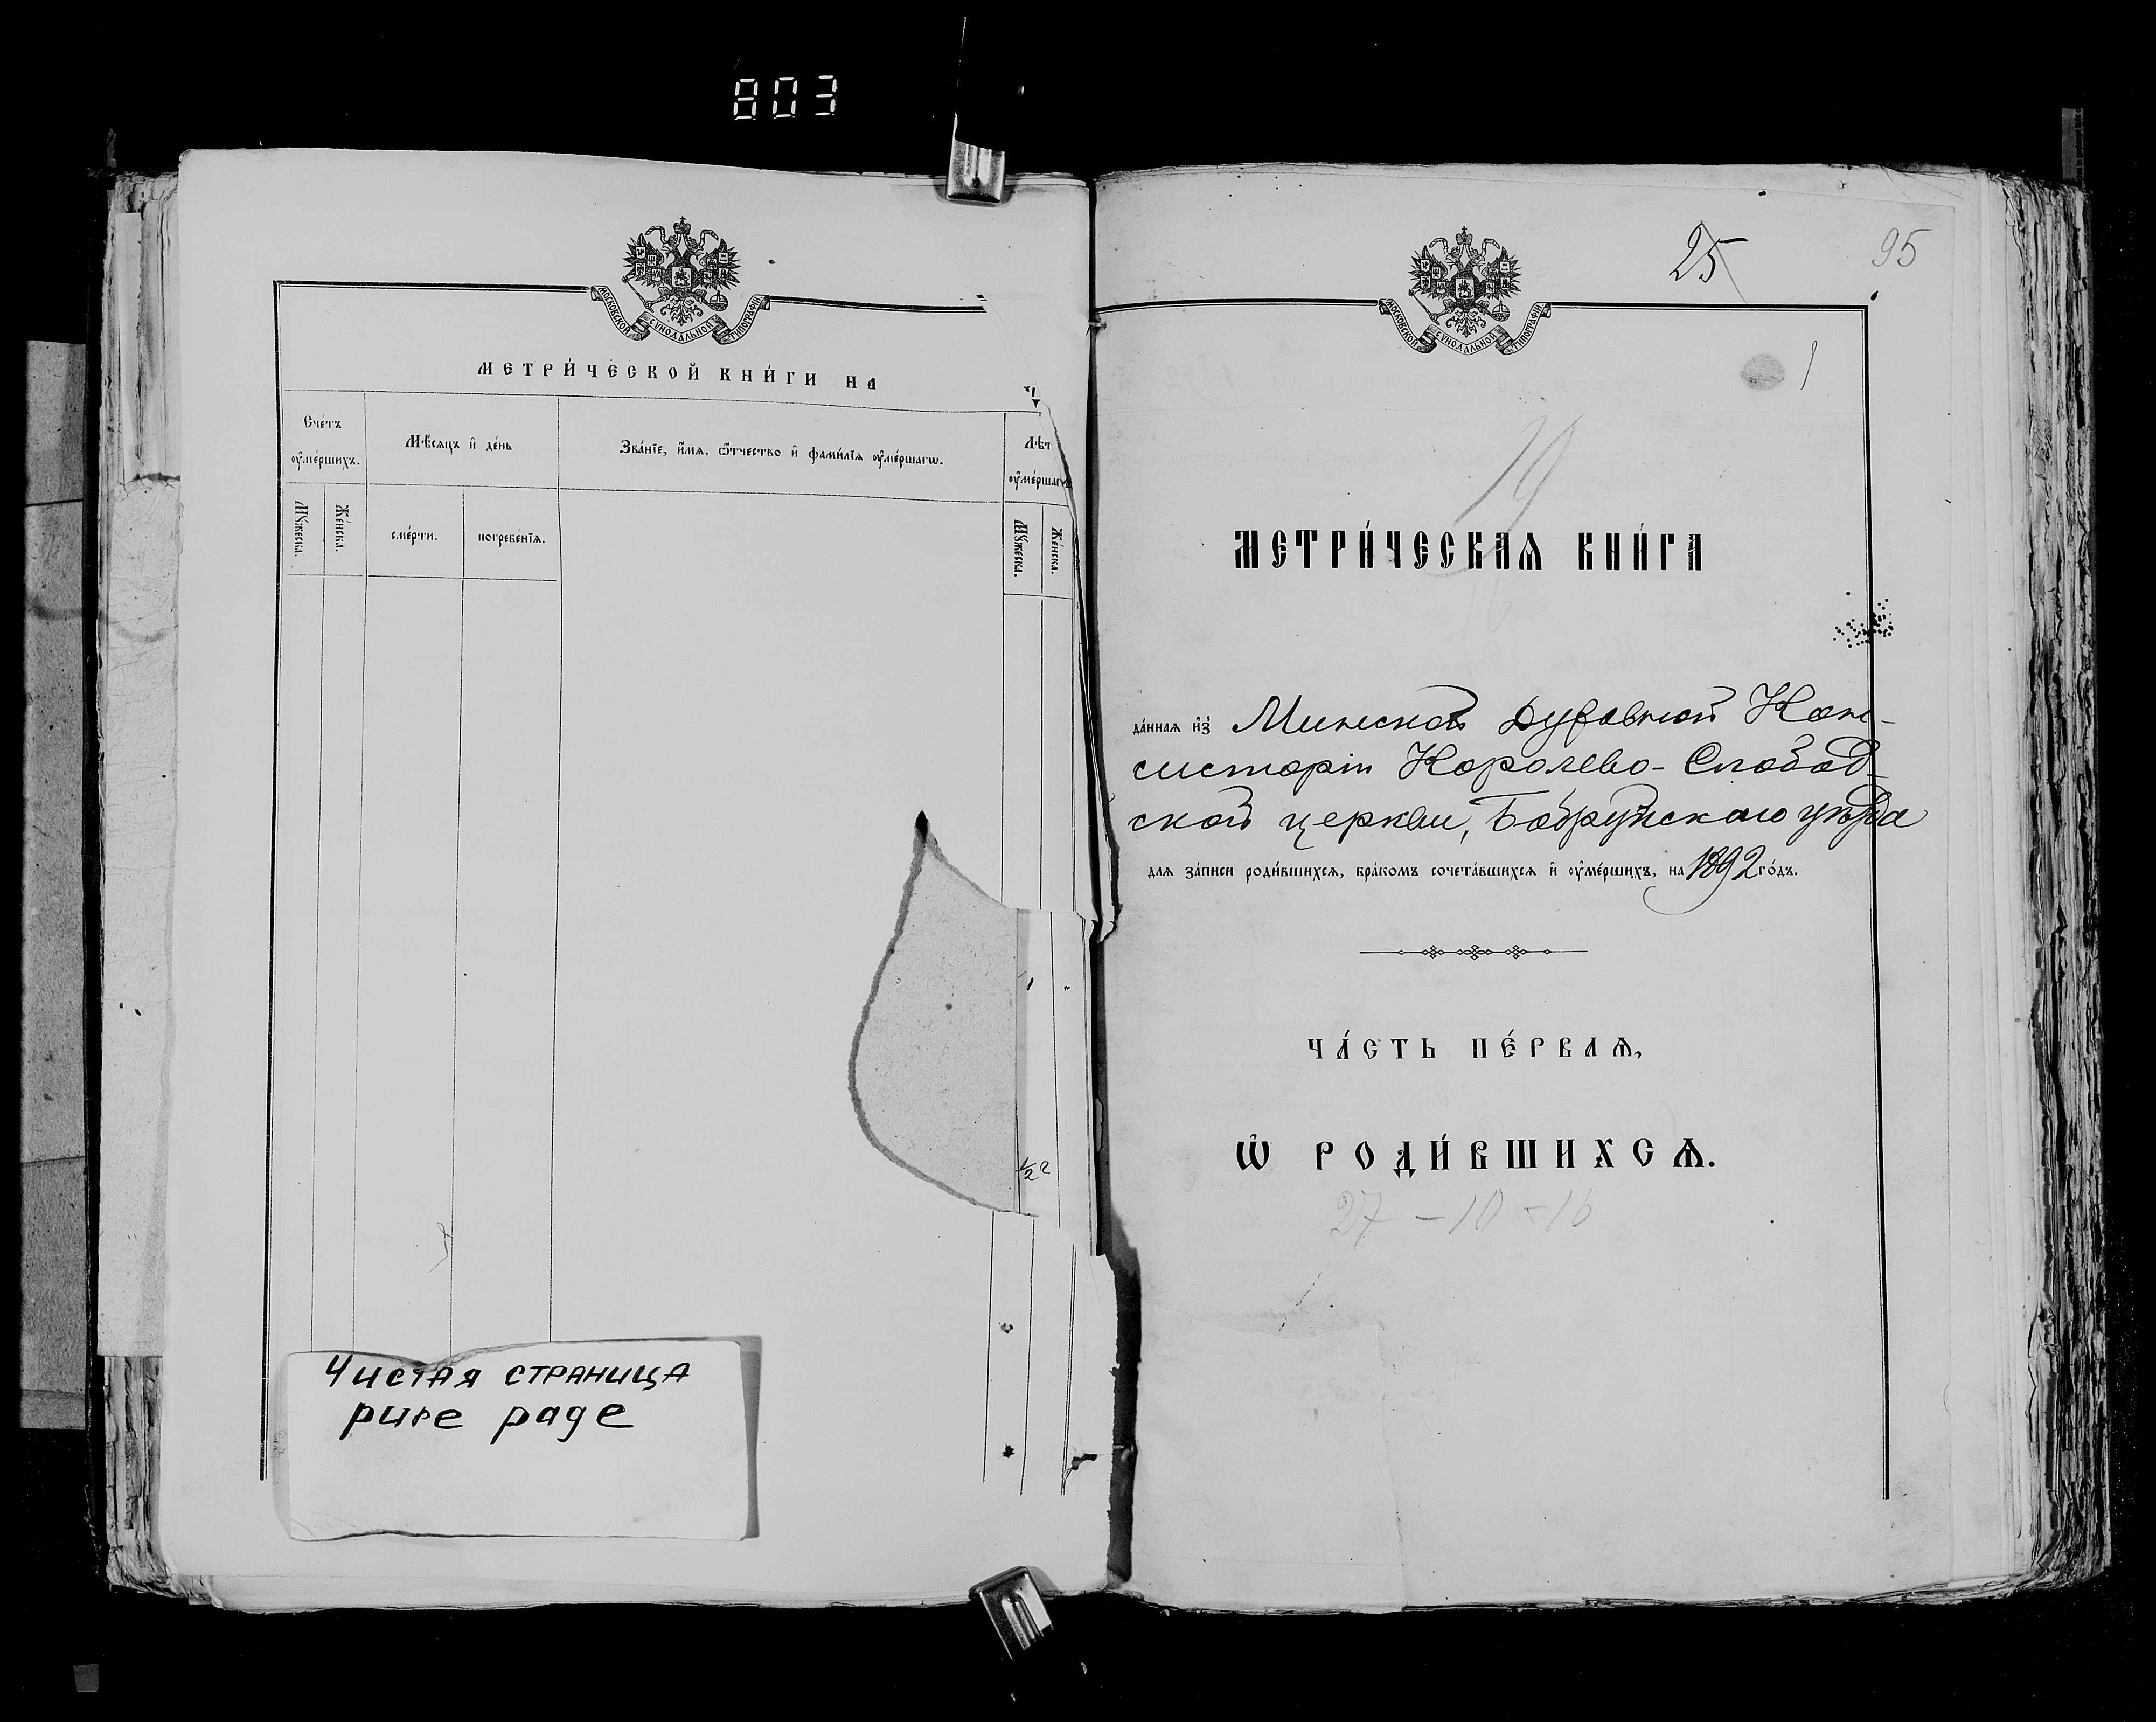 803
МОСКОВСКОЙ СѴНОДАЛЬНОЙ ТИПОГРАФІИ
МЕТРИ́ЧЕСКОЙ КНИ́ГИ НА
Сче́тъ ᲂу҆ме́ршихъ.
Мѣ́сѧцъ и҆ де́нь
Зва́нїе, и҆́мѧ, ѻ҆́тчество и҆ фами́лїѧ ᲂу҆ме́ршагѡ.
Лѣт
ᲂу҆ме́ршаг
Мꙋ́жеска.
Же́нска.
сме́рти.
погребе́нїѧ.
Мꙋ́жеска.
Же́нска.
1/2 г
Чистая страница
pure page
25
95
МОСКОВСКОЙ СѴНОДАЛЬНОЙ ТИПОГРАФІИ
1
19
МЕТРИ́ЧЕСКАѦ КНИ́ГА
да́ннаѧ и҆з̾ Минской Духовной Кон-
систоріи Королево-Слобод-
ской церкви, Бобруйскаго уѣзда
длѧ за́писи роди́вшихсѧ, бра́комъ сочета́вшихсѧ и҆ ᲂу҆ме́ршихъ, на 1892 го́дъ.
ЧА́СТЬ ПЕ́РВАѦ,
Ѽ РОДИ́ВШИХСѦ.
27 - 10 - 16